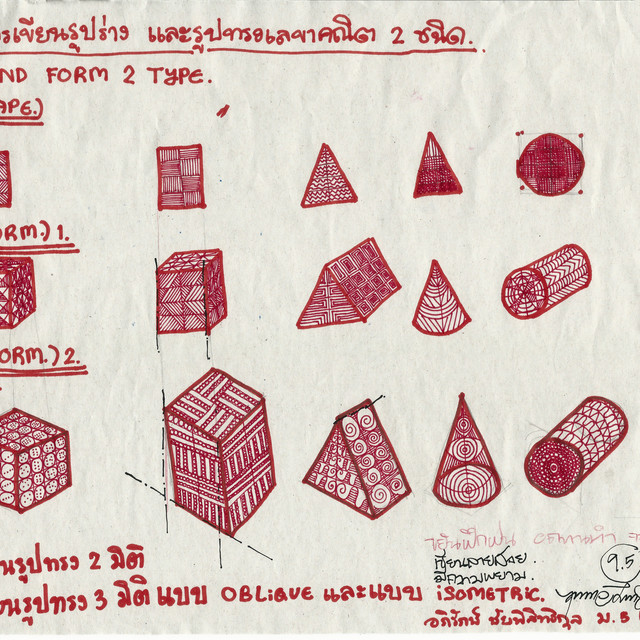 รเขียนรูปร่าง และรูปทรงเลขาคณิต 2 ชนิด.
ND FORM 2 TYPE.
APE.)
ORM.) 1.
FORM.) 2.
นรูปทรง 2 มิติ
นรูปทรง 3 มิติ แบบ OBLIQUE และแบบ ISOMETRIC.
เขียนลายสวย.
มีความพยายาม.
9.5
อภิรักษ์ ม.5